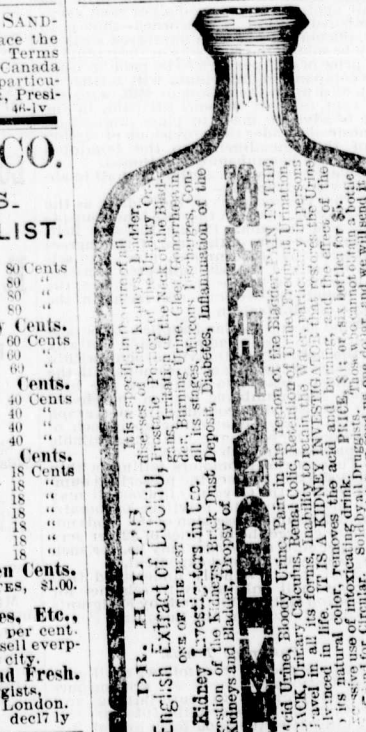 SAND-
ace the
Terms
Canada
particu-
, Presi-
46-1v
CO.
S-
LIST.
80 Cents
80 "
80 "
80 "
Cents.
60 Cents
60 "
60 "
Cents.
40 Cents
40 "
40 "
40 "
Cents.
18 Cents
18 "
18 "
18 "
18 "
18 "
18 "
en Cents.
TES, $1.00.
es, Etc.,
per cent-
sell everp-
city.
nd Fresh.
gists,
London.
dec17 ly
DR. HILL'S
English Extract of BUCHU,
ONE OF THE BEST
Kidney Investigators in Use.
It is a specific in the cure of all
diseases of the Kidneys, Bladder,
Prostate Portion of the Urinary Or-
gans, Irritation of the Neck of the Blad-
der, Burning Urine, Gleet, Gonorrhœa in
all its stages, Mucous Discharges, Con-
gestion of the Kidneys, Brick Dust Deposit, Diabetes, Inflammation of the
Kidneys and Bladder, Dropsy of
KIDNEYS
Acid Urine, Bloody Urine, Pain in the region of the Bladder, PAIN IN THE
BACK, Urinary Calculus, Renal Colic, Retention of Urine, Frequent Urination,
Gravel in all its forms, Inability to retain the Water, particularly in persons
advanced in life. IT IS A KIDNEY INVESTIGATOR that restores the Urine
to its natural color, removes the acid and burning, and the effect of the
excessive use of intoxicating drink. PRICE, $1; or, six bottles for $5.
Circular. Sold by all Druggists.
and we will send it